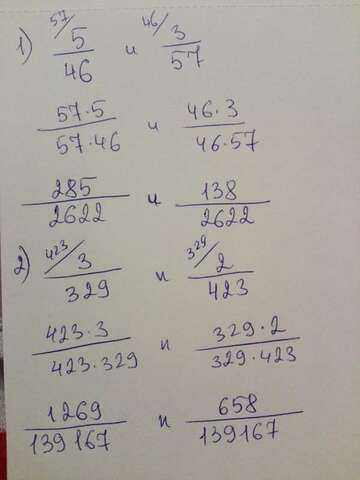 1) 57/ 5/46 и 46/ 3/57
57·5/57·46 и 46·3/46·57
285/2622 и 138/2622
2) 423/ 3/329 и 329/ 2/423
423·3/423·329 и 329·2/329·423
1269/139167 и 658/139167